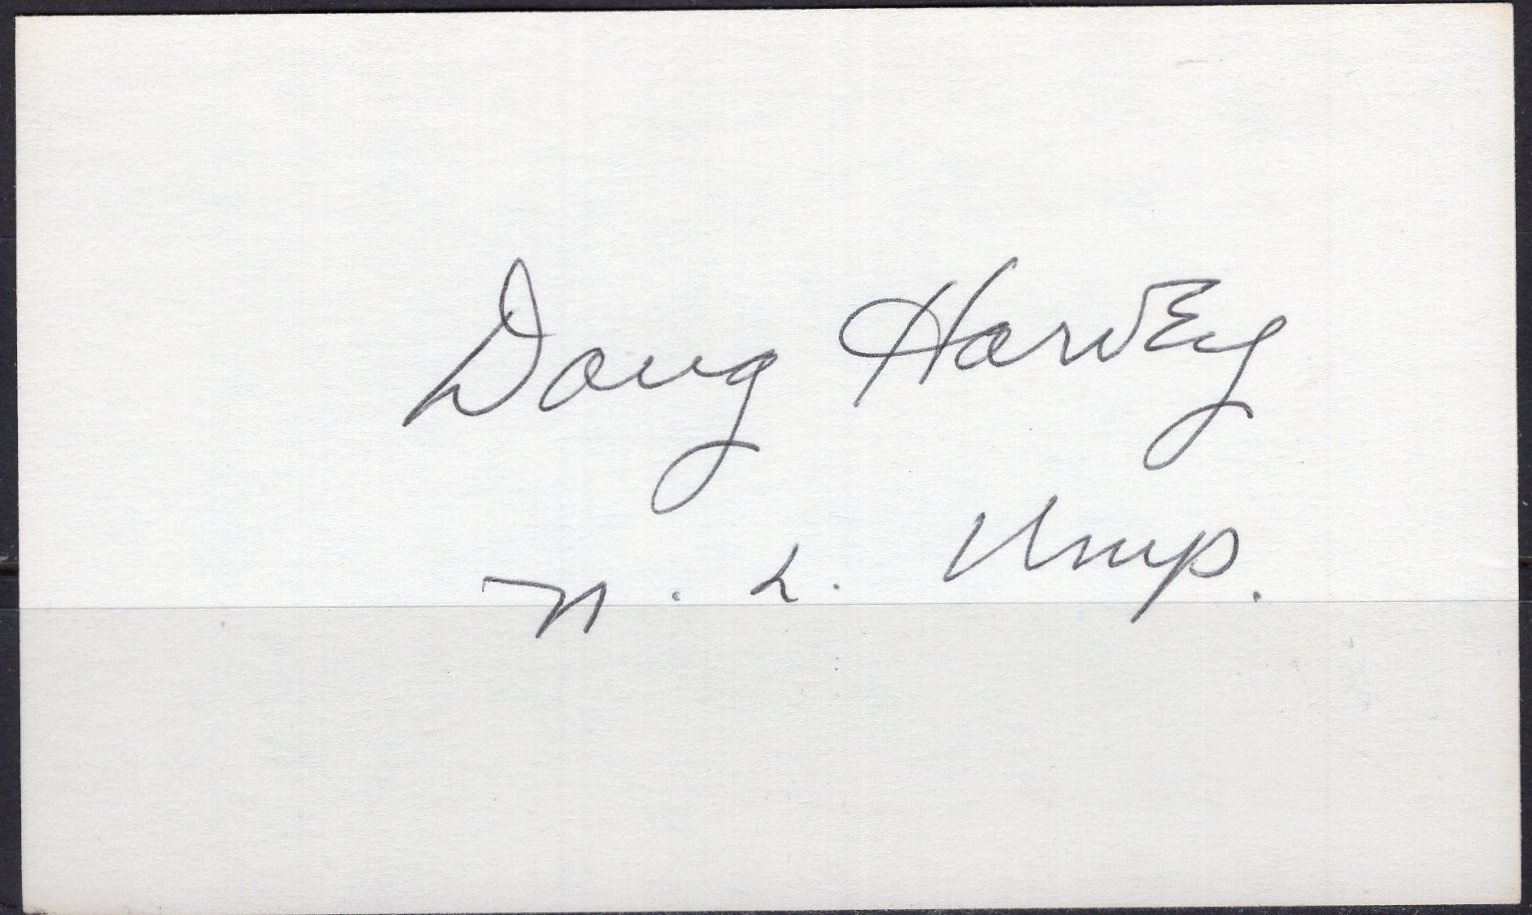 Doug Harvey
N. L. Ump.